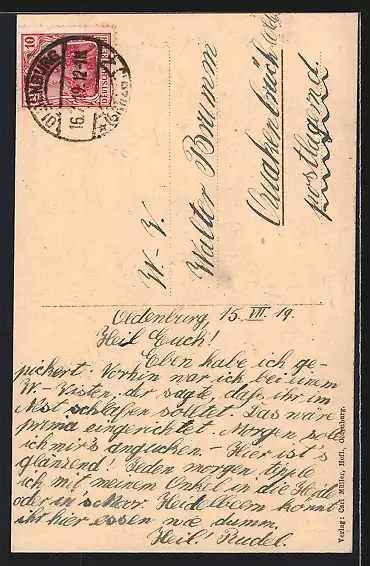 10
DEUTSCHES REICH
OLDENBURG
16.7.19.12-1N.
W.-V.
Walter Brumm
Quakenbrück
postlagernd.
Oldenburg, 15. VII. 19.
Heil Euch!
Eben habe ich ge-
pichert. Vorhin war ich bei einem
W.-Visten, der sagte, daß ihr im
Nest schlafen solltet. Das wäre
prima eingerichtet. Morgen soll
ich mir's angucken. - Hier ist's
glänzend! Jeden morgen tipple
ich mit meinem Onkel in die Heide
oder in's Moor. Heidelbeern könnt
ihr hier essen wie dumm.
Heil! Rudel.
Verlag: Carl Müller, Hofl., Oldenburg.